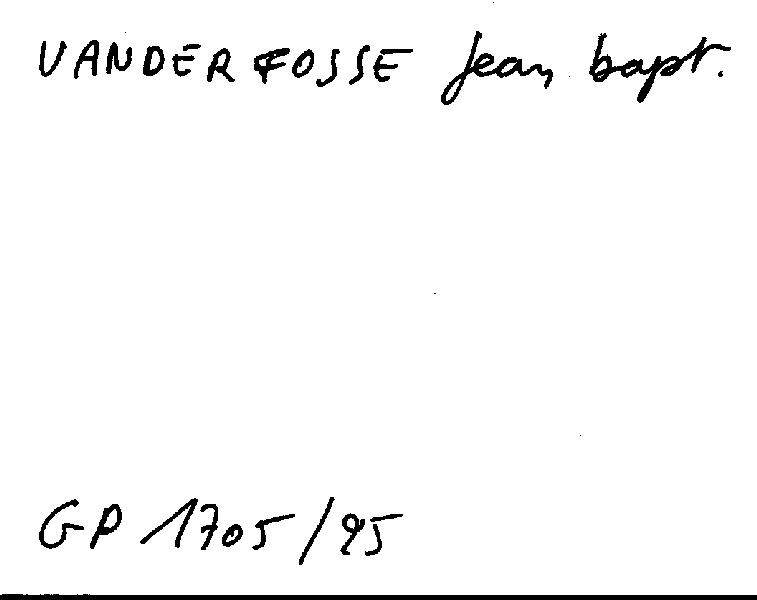 VANDER FOSSE Jean bapt.
GP 1705/95